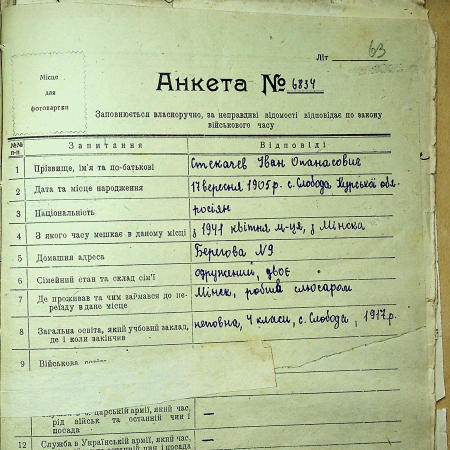 Літ 63
Місце
для
фотокартки
Анкета № 6834
Заповнюється власноручно, за неправдиві відомості відповідає по закону
військового часу
№№ п-п Запитання Відповіді
1 Прізвище, ім'я та по-батькові Стекачев Іван Опанасович
2 Дата та місце народження 17 вересня 1905 р. с. Слобода, Курської обл.
3 Національність росіян
4 З якого часу мешкає в даному місці з 1941 квітня м-ця, з Мінска
5 Домашня адреса Берегова №9
6 Сімейний стан та склад сім'ї одружений, двоє
7 Де проживав та чим займався до пе-
реїзду в дане місце Мінск, робив слюсаром
8 Загальна освіта, який учбовий заклад,
де і коли закінчив неповна, 4 класи, с. Слобода, 1917 р.
9 Військова
царській армії, який час,
рід військ та останній чин і
посада —
12 Служба в Українській армії, який час,
та останній чин і посада —